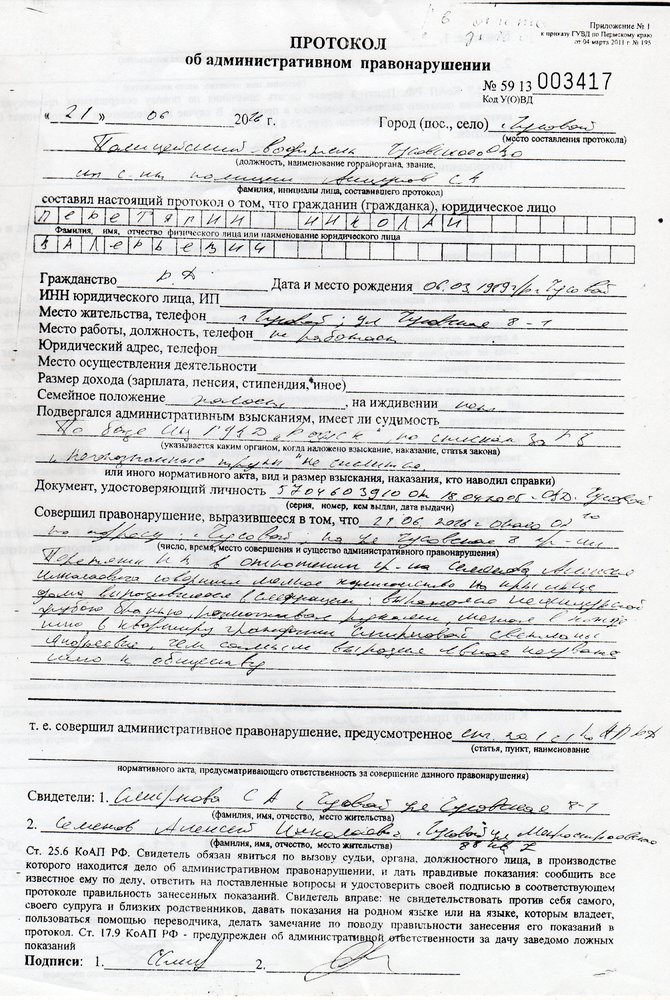 Приложение № 1
к приказу ГУВД по Пермскому краю
от 04 марта 2011 г № 195
ПРОТОКОЛ
об административном правонарушении
№ 59 13 003417
Код У(О)ВД
« 21 » 06 20 г. Город (пос., село) г. Чусовой
(место составления протокола)
Полицейский
(должность, наименование горрайоргана, звание,
с-нт полиции С А
фамилия, инициалы лица, составившего протокол)
составил настоящий протокол о том, что гражданин (гражданка), юридическое лицо
Перетягин Николай
Фамилия, имя, отчество физического лица или наименование юридического лица
Валерьевич
Гражданство РФ Дата и место рождения 06.03.1989 г/р г. Чусовой
ИНН юридического лица, ИП
Место жительства, телефон г Чусовой, ул Чусовская 8-1
Место работы, должность, телефон не работает
Юридический адрес, телефон
Место осуществления деятельности
Размер дохода (зарплата, пенсия, стипендия, иное)
Семейное положение холост, на иждивении нет
Подвергался административным взысканиям, имеет ли судимость
По базе ИЦ ГУВД "Розыск" по спискам
(указывается каким органом, когда наложено взыскание, наказание, статья закона)
"Неопознанные трупы" не
или иного нормативного акта, вид и размер взыскания, наказания, кто наводил справки)
Документ, удостоверяющий личность 5704603910 18.04.2005 Чусовой
(серия, номер, кем выдан, дата выдачи)
Совершил правонарушение, выразившееся в том, что 21.06 около
по адресу: г. Чусовой, ул Чусовская 8 гр-нин
(число, время, место совершения и существо административного правонарушения)
Перетягин Н.В. в отношении гр-на Семенова Алексея
Николаевича совершил мелкое хулиганство на крыльце
дома выразившееся в следующем: выражался нецензурной
грубой бранью, размахивал руками,
в квартиру гражданки Смирновой Светланы
Андреевны, чем самым выразил явное неуваже
ние к обществу
т. е. совершил административное правонарушение, предусмотренное ст. 20.1 ч.1 КоАП РФ
(статья, пункт, наименование
нормативного акта, предусматривающего ответственность за совершение данного правонарушения)
Свидетели: 1. Смирнова С А г. Чусовой ул Чусовская 8-1
(фамилия, имя, отчество, место жительства)
2. Семенов Алексей Николаевич г. Чусовой ул
(фамилия, имя, отчество, место жительства)
Ст. 25.6 КоАП РФ. Свидетель обязан явиться по вызову судьи, органа, должностного лица, в производстве
которого находится дело об административном правонарушении, и дать правдивые показания: сообщить все
известное ему по делу, ответить на поставленные вопросы и удостоверить своей подписью в соответствующем
протоколе правильность занесенных показаний. Свидетель вправе: не свидетельствовать против себя самого,
своего супруга и близких родственников, давать показания на родном языке или на языке, которым владеет,
пользоваться помощью переводчика, делать замечание по поводу правильности занесения его показаний в
протокол. Ст. 17.9 КоАП РФ - предупрежден об административной ответственности за дачу заведомо ложных
показаний
Подписи: 1. 2.